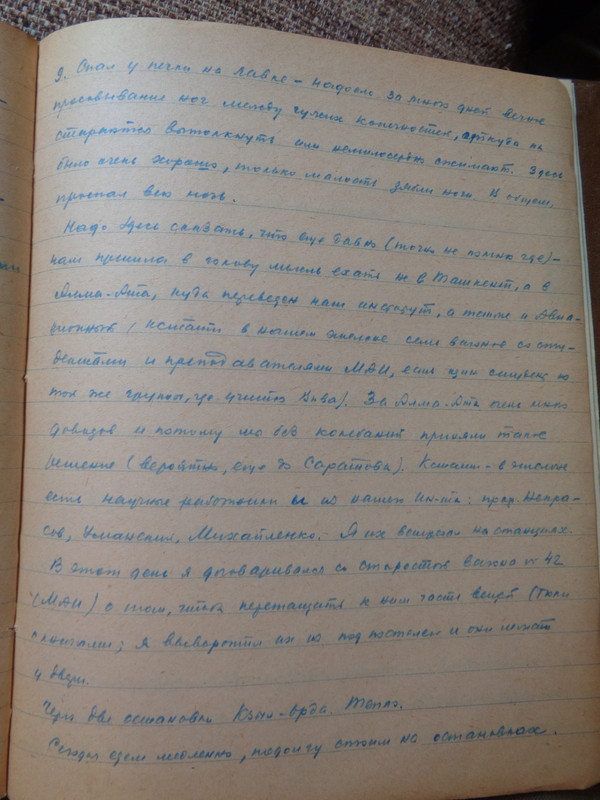 9. Спал у печки на лавке – надоели за много дней вечные
просовывание ног между чужих конечностей, откуда их
стараются вытолкнуть или немилосердно сжимают. Здесь
было очень хорошо, только малость зябли ноги. В общем,
проспал всю ночь.
Надо здесь сказать, что еще давно (точно не помню где) –
нам пришла в голову мысль ехать не в Ташкент, а в
Алма-Ата, куда переведен наш институт, а также и Авиа-
ционный (кстати в нашем эшелоне семь вагонов со сту-
дентами и преподавателями МАИ, есть один человек из
той же группы, где учится
За Алма-Ата очень много
доводов и потому мы без колебаний приняли такое
решение (вероятно, еще до Саратова). Кстати – в эшелоне
есть научные работники и из нашего Ин-та: проф. Некра-
сов, Уманский, Михайленко. Я их встречал на станциях.
В этот день я договаривался со старостой вагона № 42
(МАИ) о том, чтобы перетащить к ним часть вещей (тюки
с книгами; я выворотил их из под постелей и они лежат
у двери.
Через две остановки Кзыл-Орда. Тепло.
Сегодня едем медленно, подолгу стоим на остановках.